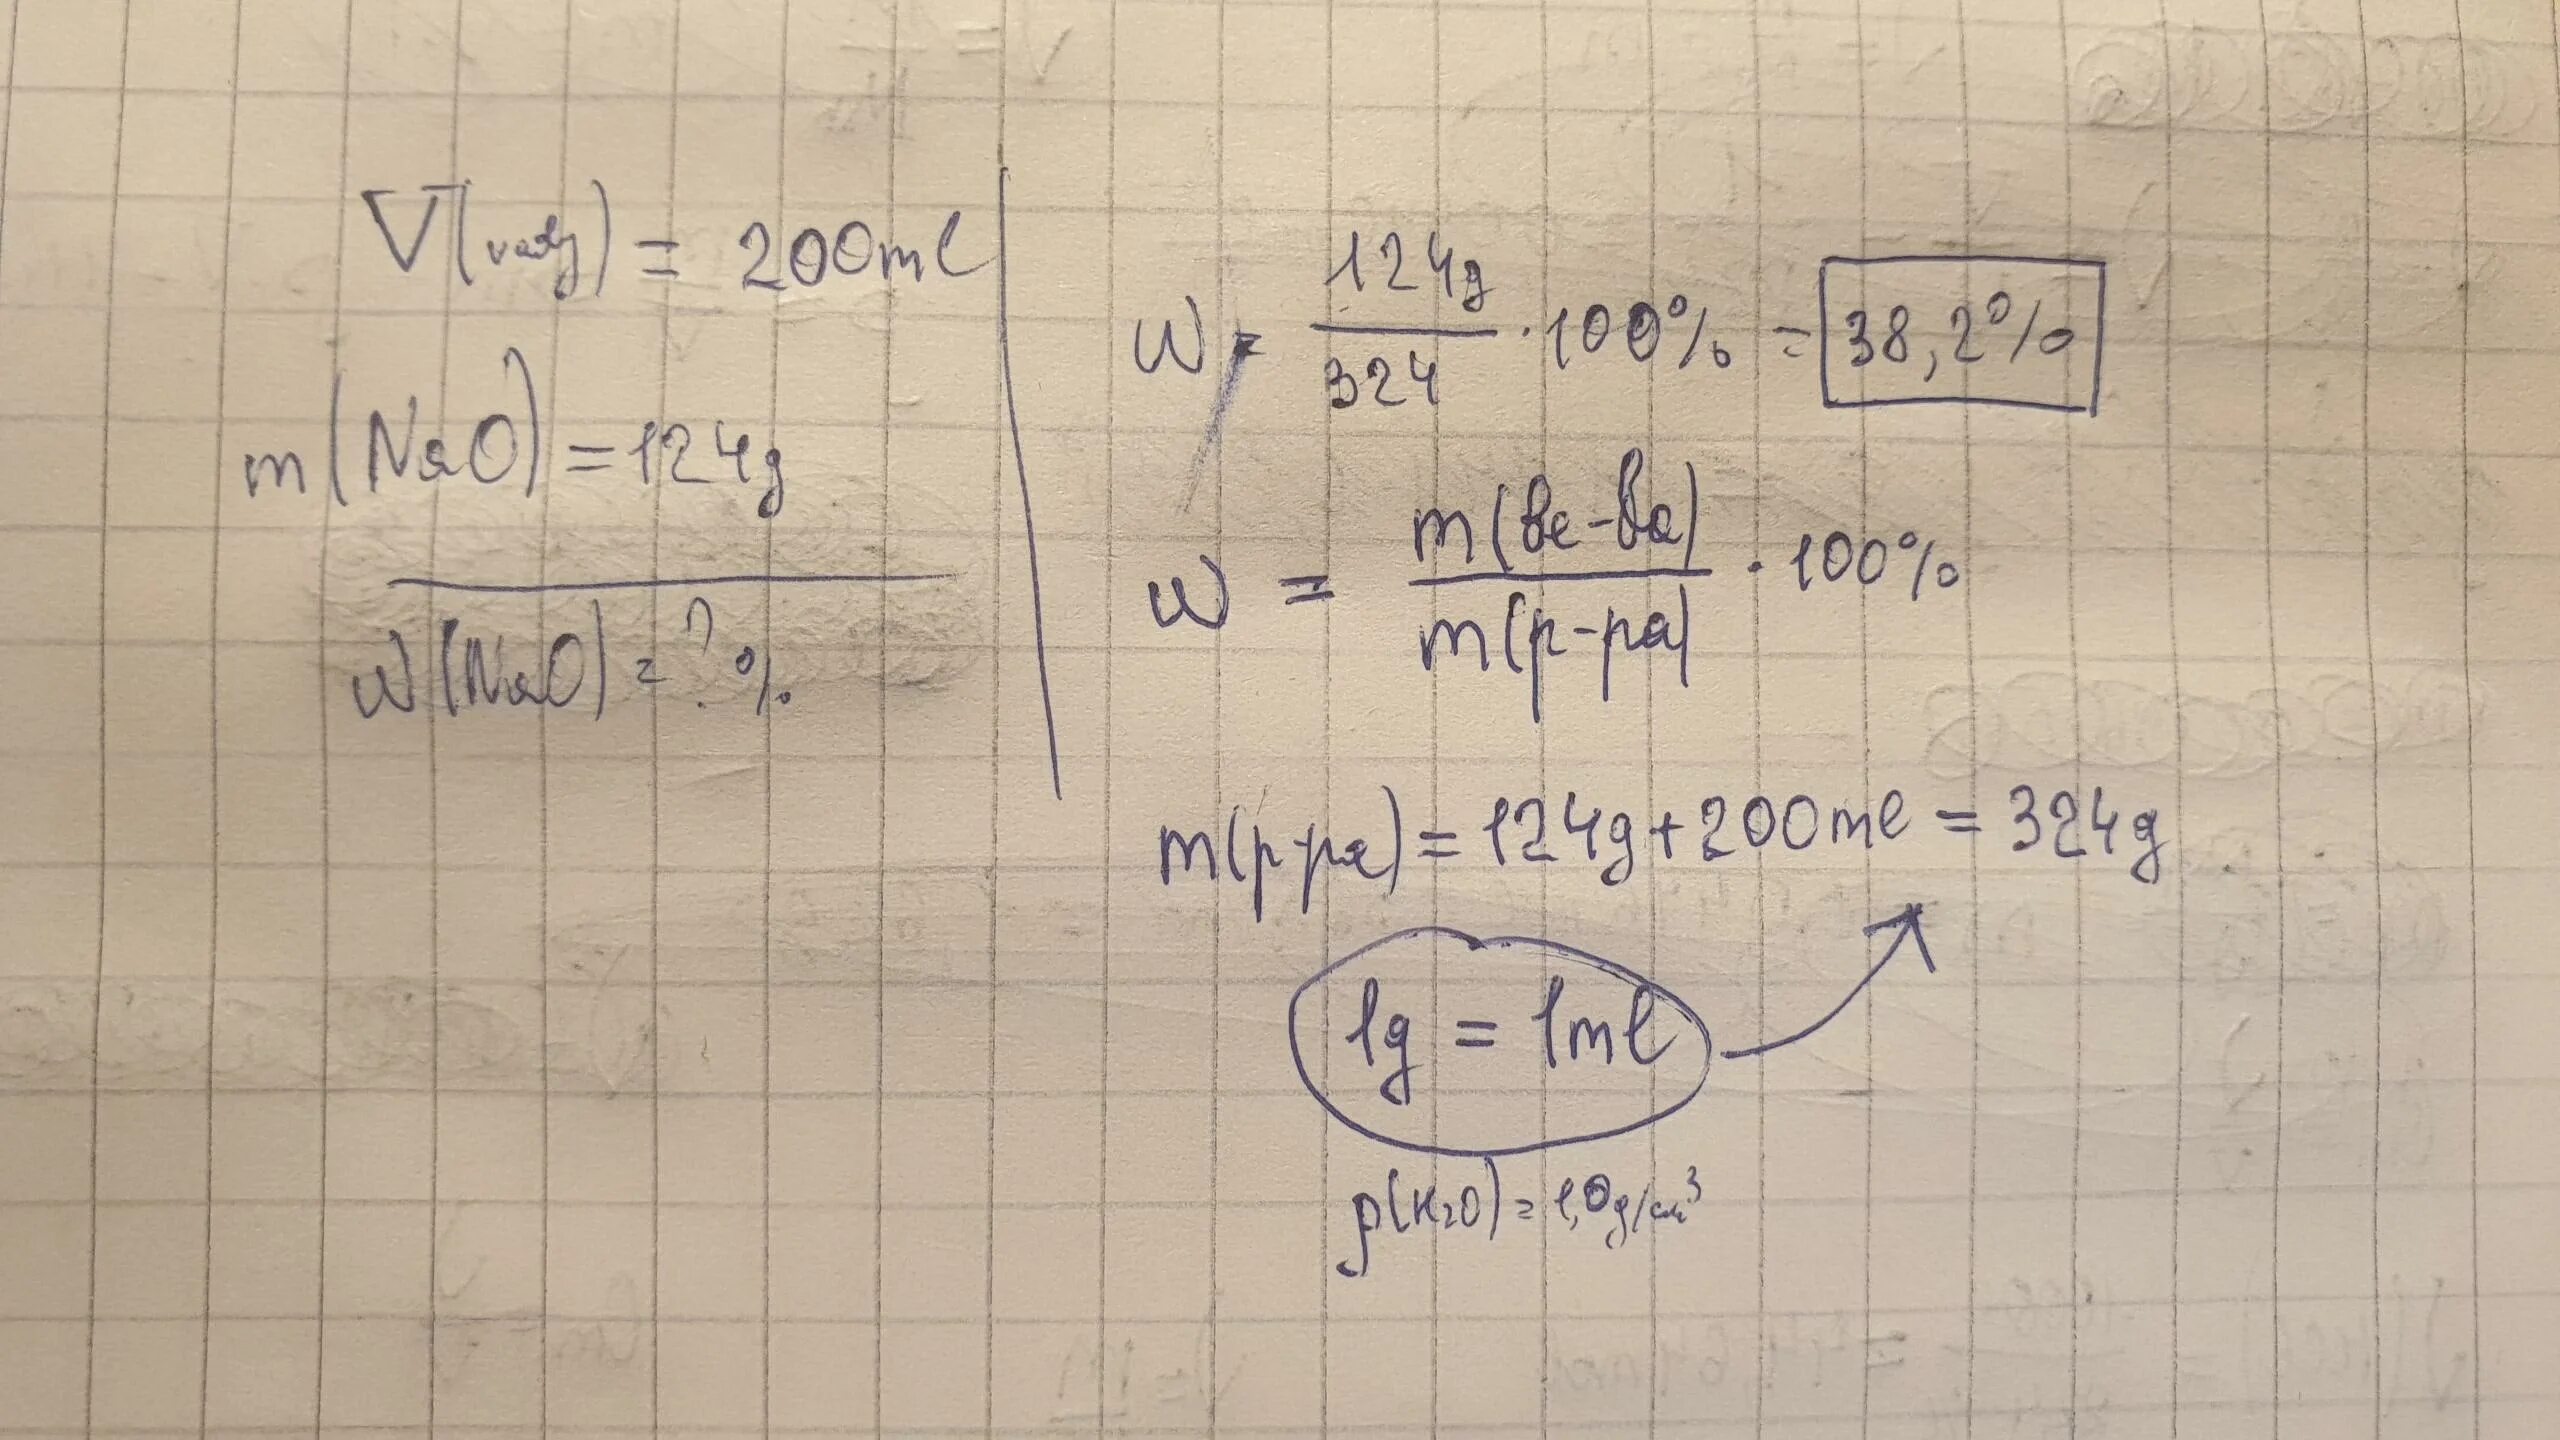 V(vody) = 200ml
m(NaO) = 124g
w(NaO) = ? %
w = 124g / 324 · 100% = 38,2%
w = m(ве-ва) / m(р-ра) · 100%
m(р-ра) = 124g + 200ml = 324g
1g = 1ml
ρ(H2O) = 1,0g/см³